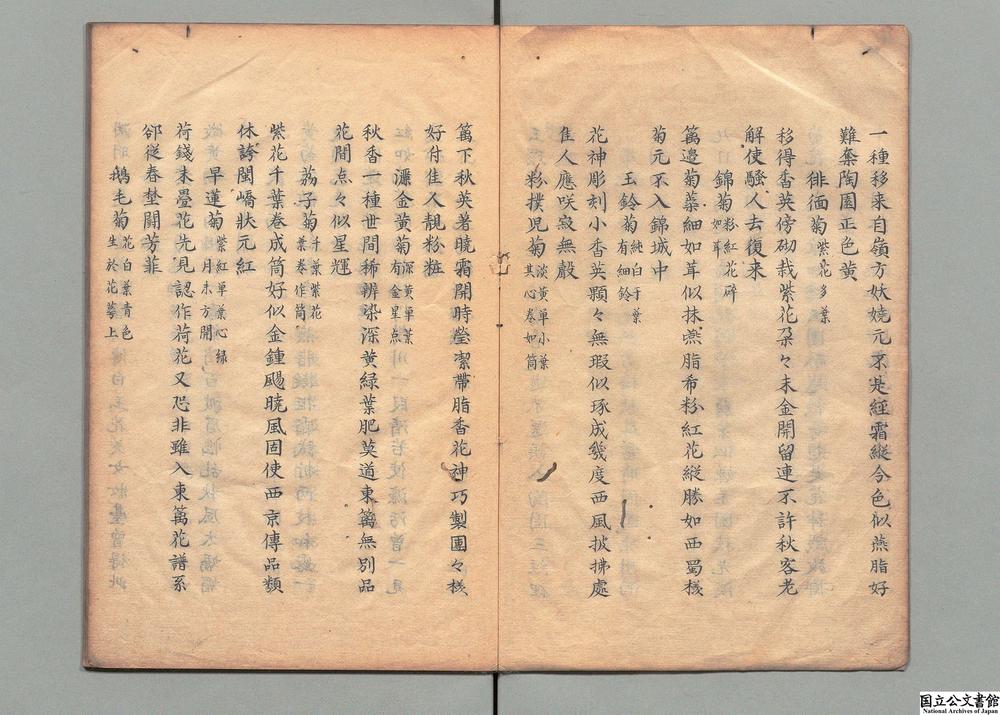 一種移来自嶺方妖嬈元不是經霜縱令色似燕脂好
難奪陶園正色黄
徘徊菊紫花多葉
移得香英傍砌栽紫花朶々未全開留連不許秋客老
解使騷人去復来
錦菊粉紅花碎如茸
籬邊菊蘂細如茸似抹嚥脂希粉紅花縱勝如西蜀様
菊元不入錦城中
玉鈴菊純白千葉有細鈴
花神彫刻小香英顆々無瑕似琢成幾度西風披拂處
佳人應咲寂無聲
粉撲児菊淡黄單小葉其心卷如筒
籬下秋英著曉霜開時瑩潔帶脂香花神巧製團々様
好付佳人靚粉粧
灑金黄菊深黄單葉有金星点
秋香一種世間稀辨染深黄緑葉肥莫道東籬無別品
花間点々似星輝
荔子菊千葉紫花葉卷作筒
紫花千葉卷成筒好似金鍾颺曉風固使西京傳品類
休誇閩嶠狀元紅
早蓮菊紫紅單葉心緑月未方開
荷錢未疊花先見認作荷花又恐非雖入東籬花譜系
郤従春埜鬪芳菲
鵝毛菊花白葉青色生於花萼上
国立公文書館
National Archives of Japan